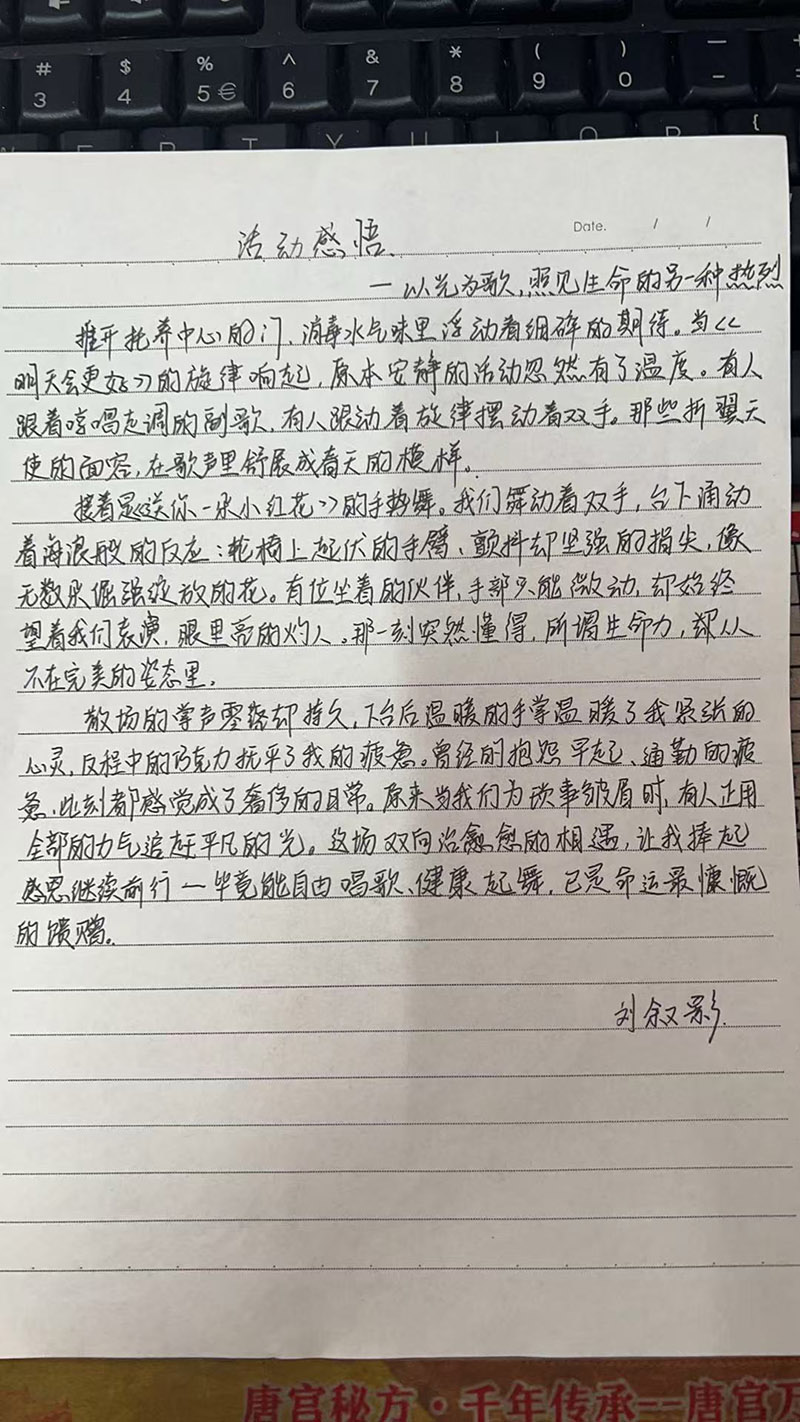 # $ % ^ & * ( ) —
3 4 5 € 6 7 8 9 0 -
{
Date. / /
活动感悟.
— 以光为歌,照见生命的另一种热烈
推开托养中心的门、消毒水气味里浮动着细碎的期待。当<<
明天会更好>>的旋律响起,原本安静的活动忽然有了温度。有人
跟着哼唱走调的副歌,有人跟动着旋律摆动着双手。那些折翼天
使的面容,在歌声里舒展成春天的模样。
接着是《送你一朵小红花>>的手势舞。我们舞动着双手,台下涌动
着海浪般的反应:轮椅上起伏的手臂、颤抖却坚强的指尖,像
无数朵倔强绽放的花。有位坐着的伙伴,手部只能微动,却始终
望着我们表演,眼里亮的灼人。那一刻突然懂得,所谓生命力,却从
不在完美的姿态里。
散场的掌声零落却持久,下台后温暖的手掌温暖了我紧张的
心灵,反程中的巧克力抚平了我的疲惫。曾经的抱怨早起、通勤的疲
惫,此刻都感觉成了奢侈的日常。原来当我们为琐事皱眉时,有人正用
全部的力气追赶平凡的光。这场双向治愈的相遇,让我捧起
感恩继续前行—毕竟能自由唱歌、健康起舞,已是命运最慷慨
的馈赠.
刘叙影.
唐宫秘方·千年传承—唐宫